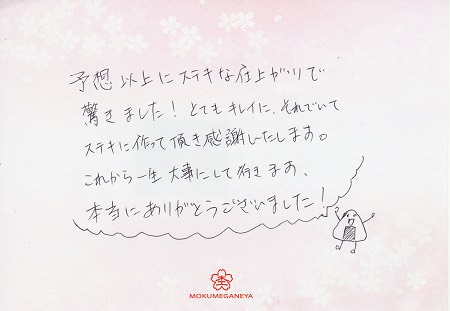 予想以上にステキな仕上がりで
驚きました！とてもキレイに、それでいて
ステキに作って頂き感謝いたします。
これから一生大事にして行きます、
本当にありがとうございました！
杢
MOKUMEGANEYA